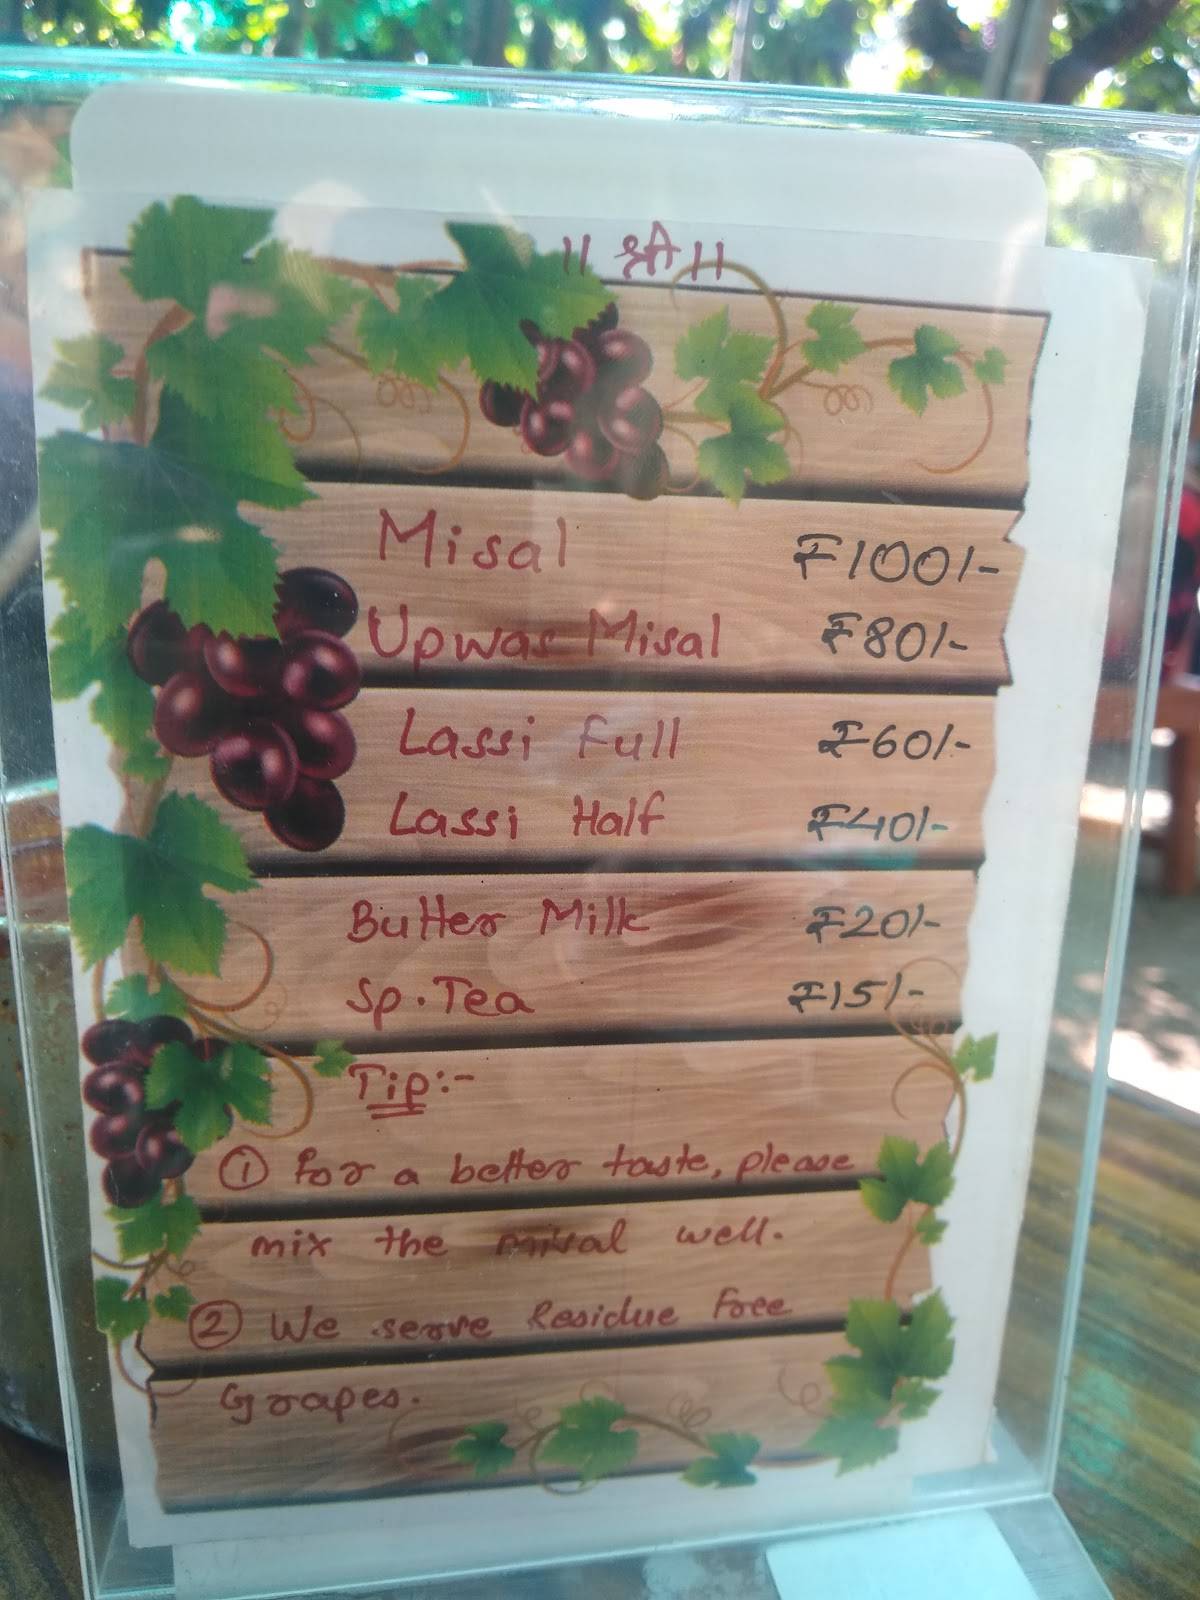 || श्री ||
Misal ₹100/-
Upwas Misal ₹80/-
Lassi Full ₹60/-
Lassi Half ₹40/-
Butter Milk ₹20/-
Sp. Tea ₹15/-
Tip:-
① For a better taste, please
mix the misal well.
② We serve Residue Free
Grapes.